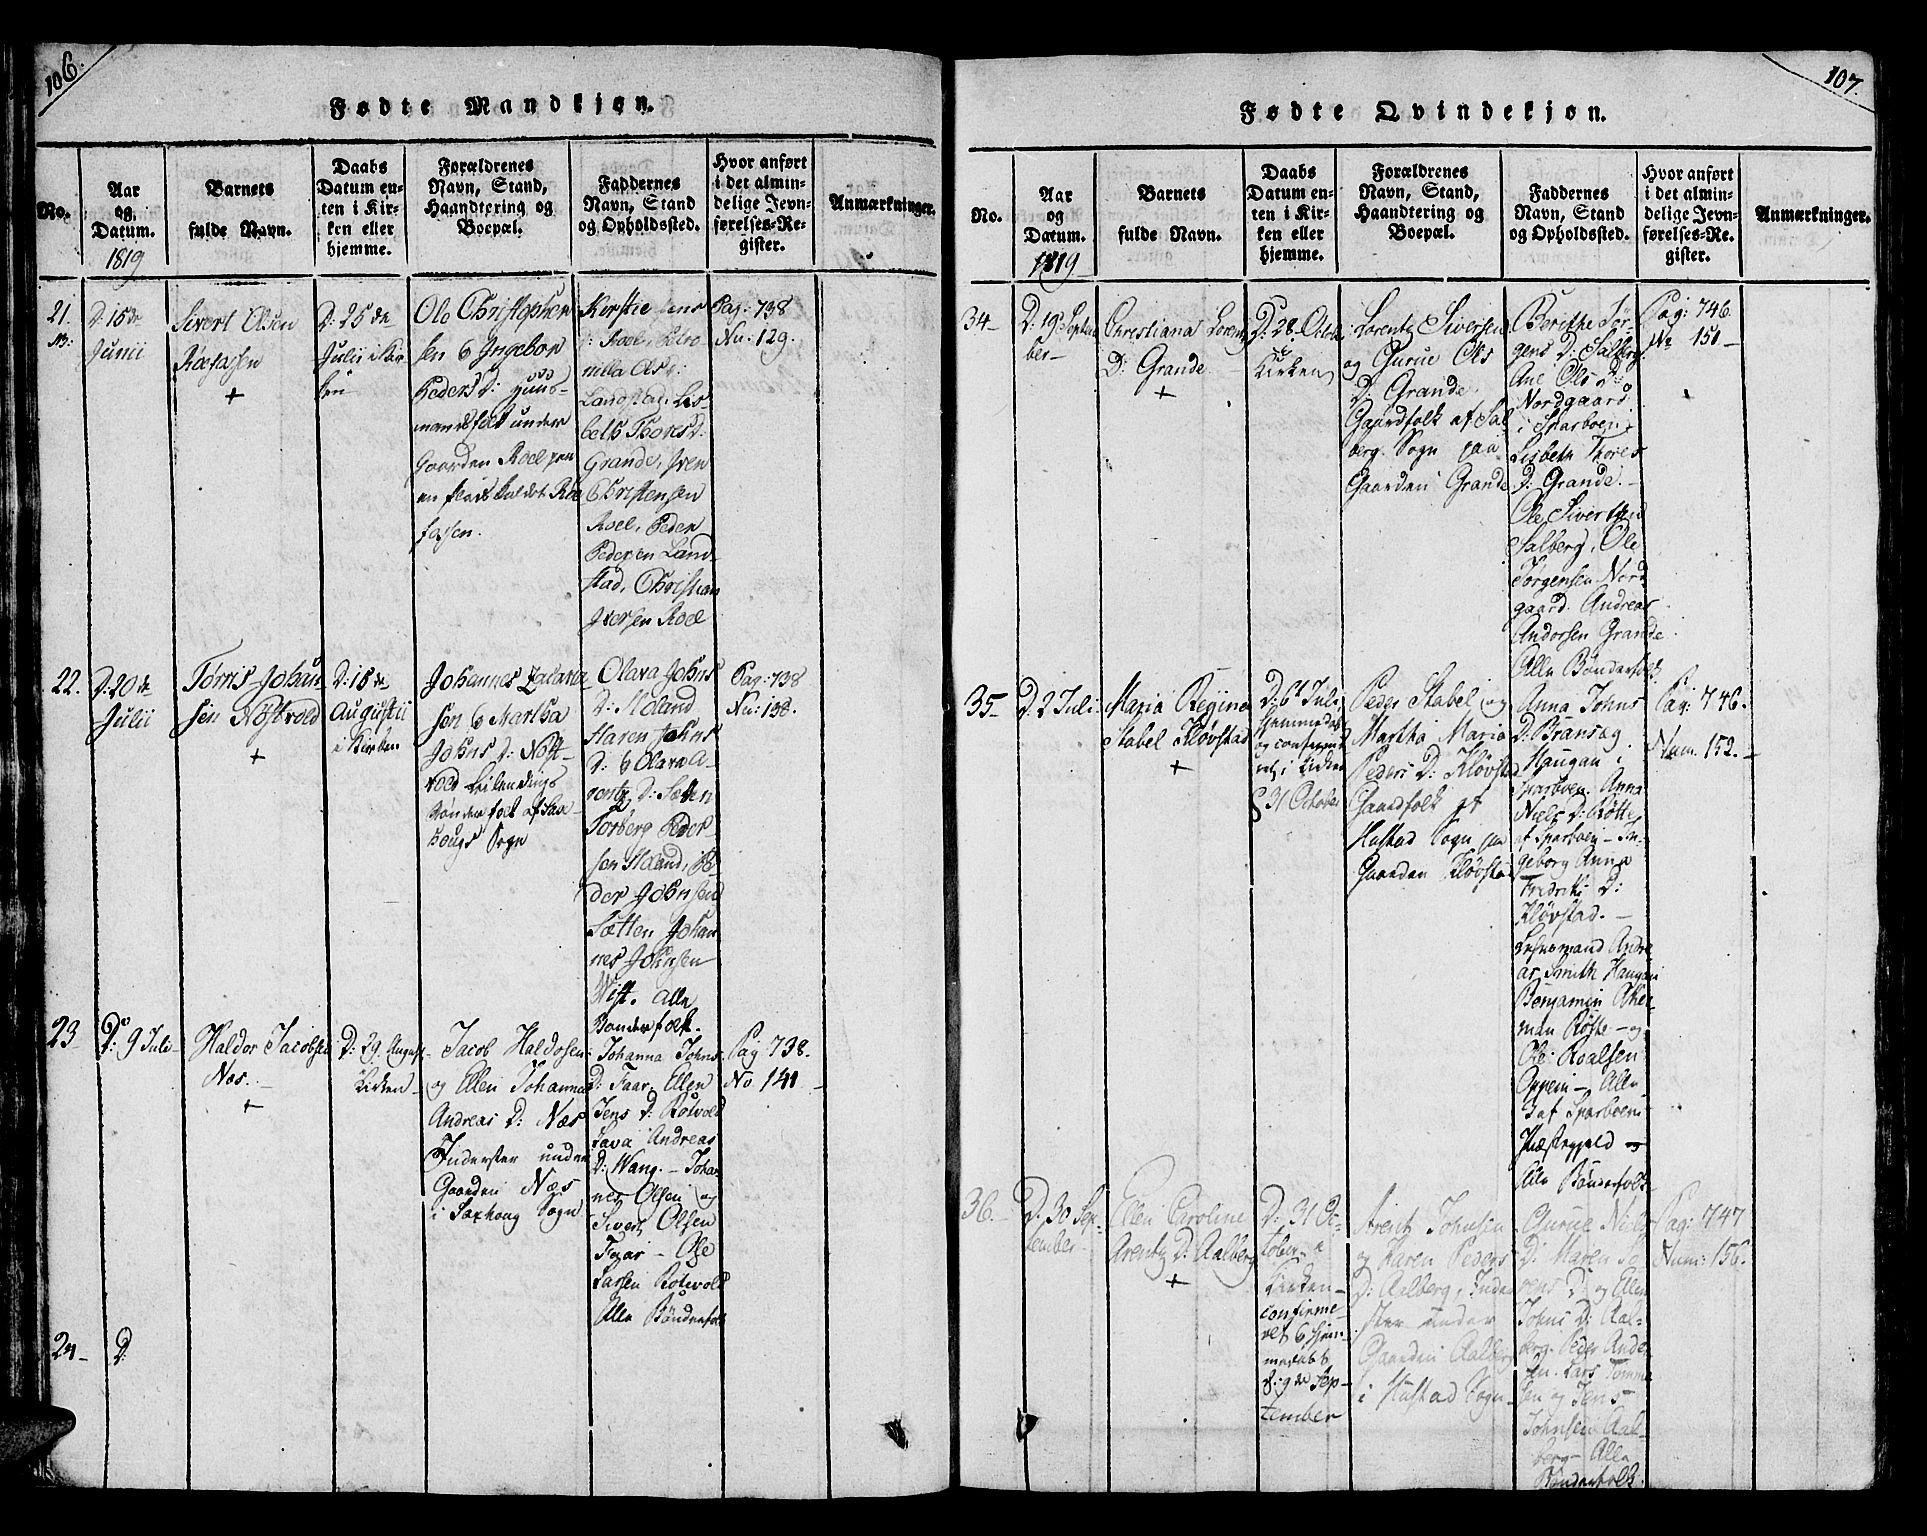 106.
Fødte Mandkjøn.
No.
Aar
og
Datum.
1819
Barnets
fulde Navn.
Daabs
Datum en-
ten i Kir-
ken eller
hjemme.
Forældrenes
Navn, Stand,
Haandtering og
Boepæl.
Faddernes
Navn, Stand
og Opholdssted.
Hvor anført
i det almin-
delige Jevn-
førelses-Re-
gister.
Anmærkninger.
21.
D: 15de
Junii
Sivert Olsen
+
D: 25de
Julii i Kir-
ken
Ole Christopher
sen & Ingebor
Peders D: Huus-
mandsfolk under
Gaarden Roel paa
Kirstie
Roel, Petro-
nella Ols D:
Landstad, Lis-
beth Thores D:
Grande, Iven
Christensen
Roel, Peder
Pedersen Land-
stad, Christian
Iversen Roel
Pag: 738
Nu: 129.
22.
D: 20de
Julii
Tørris Johan-
sen Nøstvold
+
D: 15de
Augustii
i Kirken
Johannes
sen & Martha
Johns D: Nøst-
vold
Bønderfolk af Sax-
hougs Sogn
Olava Johns
D: Moland
Maren Johns
D: & Olava A-
rentz D: Sætten
Torberg Peder-
sen Moland, Pe-
der Johnsen
Sætten Johan-
nes Johnsen
Wist. Alle
Bønderfolk.
Pag: 738
Nu: 138.
23
D: 9 Juli
Haldor Jacobsen
Næs.
+
D: 29. August
Kirken
Jacob Haldosen
og Ellen Johanna
Andreas D: Næs
Inderster under
Gaarden Næs
i Saxhoug Sogn
Johanna Johns
D: Faar, Ellen
Jens D: Røtvold
Andreas
D: Wang. - Johan-
nes Olsen og
Sivert Olsen
- Ole
Larsen Røtvold
Alle Bønderfolk
Pag 738.
No 141
24
D:
107.
Fødte Qvindekjøn.
No.
Aar
og
Datum.
1819
Barnets
fulde Navn.
Daabs
Datum en-
ten i Kir-
ken eller
hjemme.
Forældrenes
Navn, Stand,
Haandtering og
Boepæl.
Faddernes
Navn, Stand
og Opholdssted.
Hvor anført
i det almin-
delige Jevn-
førelses-Re-
gister.
Anmærkninger.
34
D: 19 Septem
ber
Christiana Lorentz
D: Grande
+
D: 28. Octob
Kirken
Lorentz Siversen
og Gurue Ols
D: Grande
Gaardfolk af Sal-
berg Sogn paa
Gaarden Grande
Berithe Jør-
gens D: Salberg
Ane Ols D:
Nordgaard
i Sparboen
Lisbeth Thores
D: Grande.
Ole Sivertsen
Salberg, Ole
Jørgensen Nord
gaard. Andreas
Andorsen Grande
Alle Bønderfolk.
Pag: 746.
No 151
35
D. 2 Juli
Maria Regina
Stabel Kløvstad
+
D. 6t Juli
hjemmedøbt
og confirme
ret i Kirken
d 31 October
Peder Stabel og
Martha Maria
Peders D: Kløvstad
Gaardfolk af
Hustad Sogn paa
Gaarden Kløvstad
Anna Johns
D: Bransag
Haugan i
Sparboen. Anna
Niels D: Røtte
af Sparboen - In-
geborg Anna
Fredriks D:
Kløvstad. -
Lensmand Andre-
as Smith Haugan
Benjamin
man Røste - og
Ole Roalsen
Oppem - Alle
af Sparboens
Præstegjeld -
Alle Bønderfolk
Pag: 746.
Num. 152.
36.
D. 30 Sep-
tember
Ellen Caroline
Arentz D: Aalberg
+
D: 31 Oc-
tober i
Kirken -
confirme-
ret & hjem-
medøbt
d: 9de Sep-
tember
Arent Johnsen
og Karen Peders
D: Aalberg, Inder
ster under
Gaarden Aalberg
i Hustad Sogn
Gurue Niels
D: Maren
D: og Ellen
Johns D: Aal-
berg. Peder Ander
sen. Lars Tomme
sen og Jens
Johnsen Aal-
berg - Alle
Bønderfolk.
Pag: 747
Num: 156.